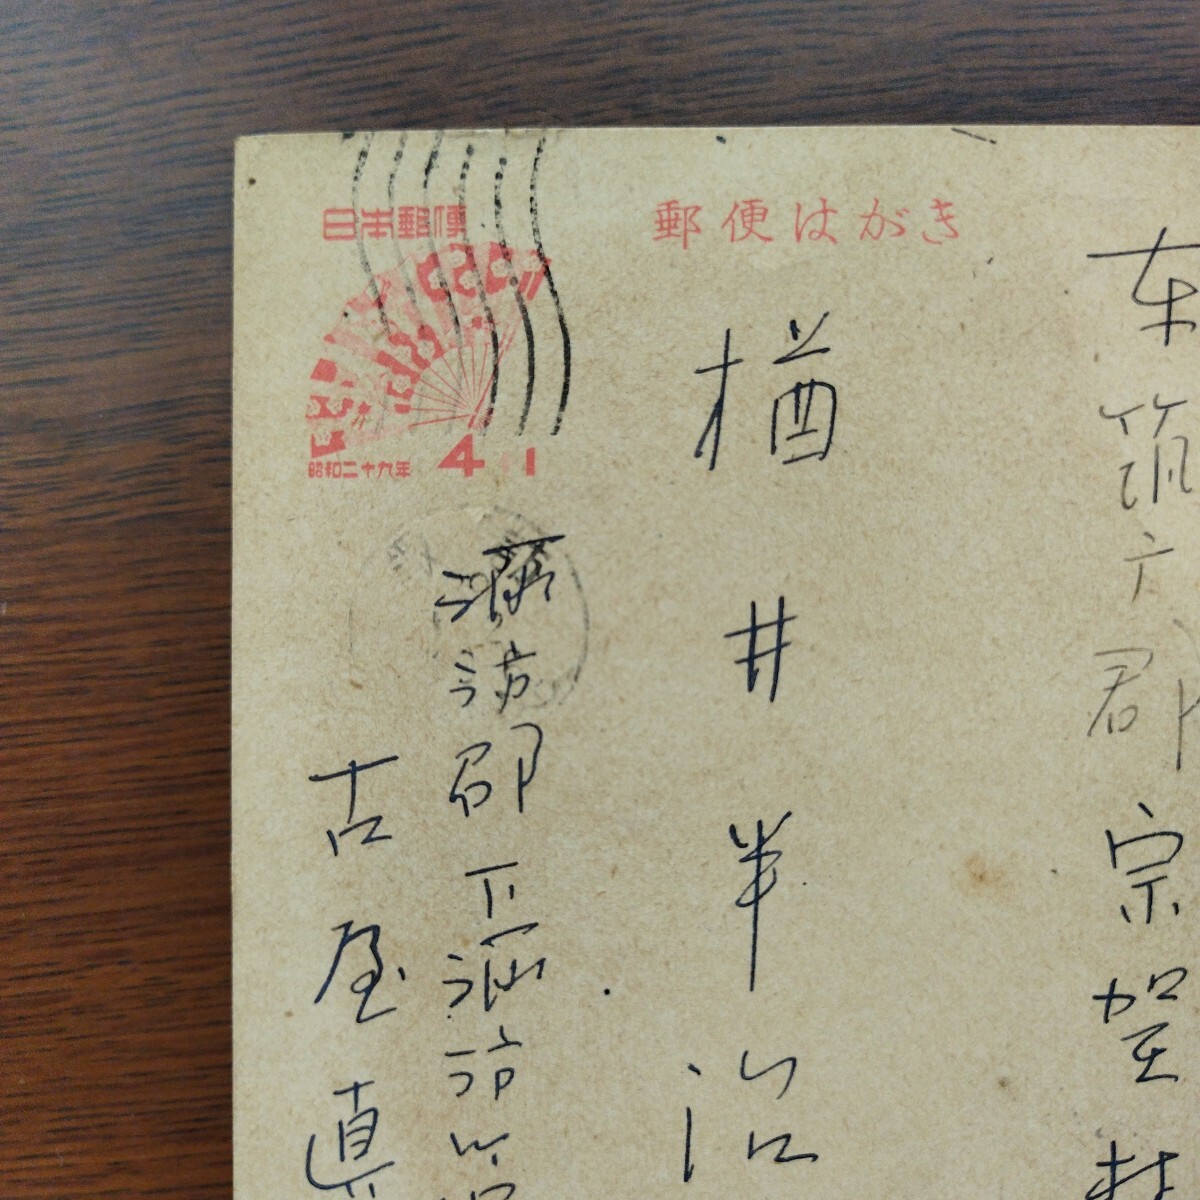 日本郵便
昭和二十九年
4 1
郵便はがき
东筑广郡宗賀村
楢井半治
諏訪郡下諏訪
古屋眞